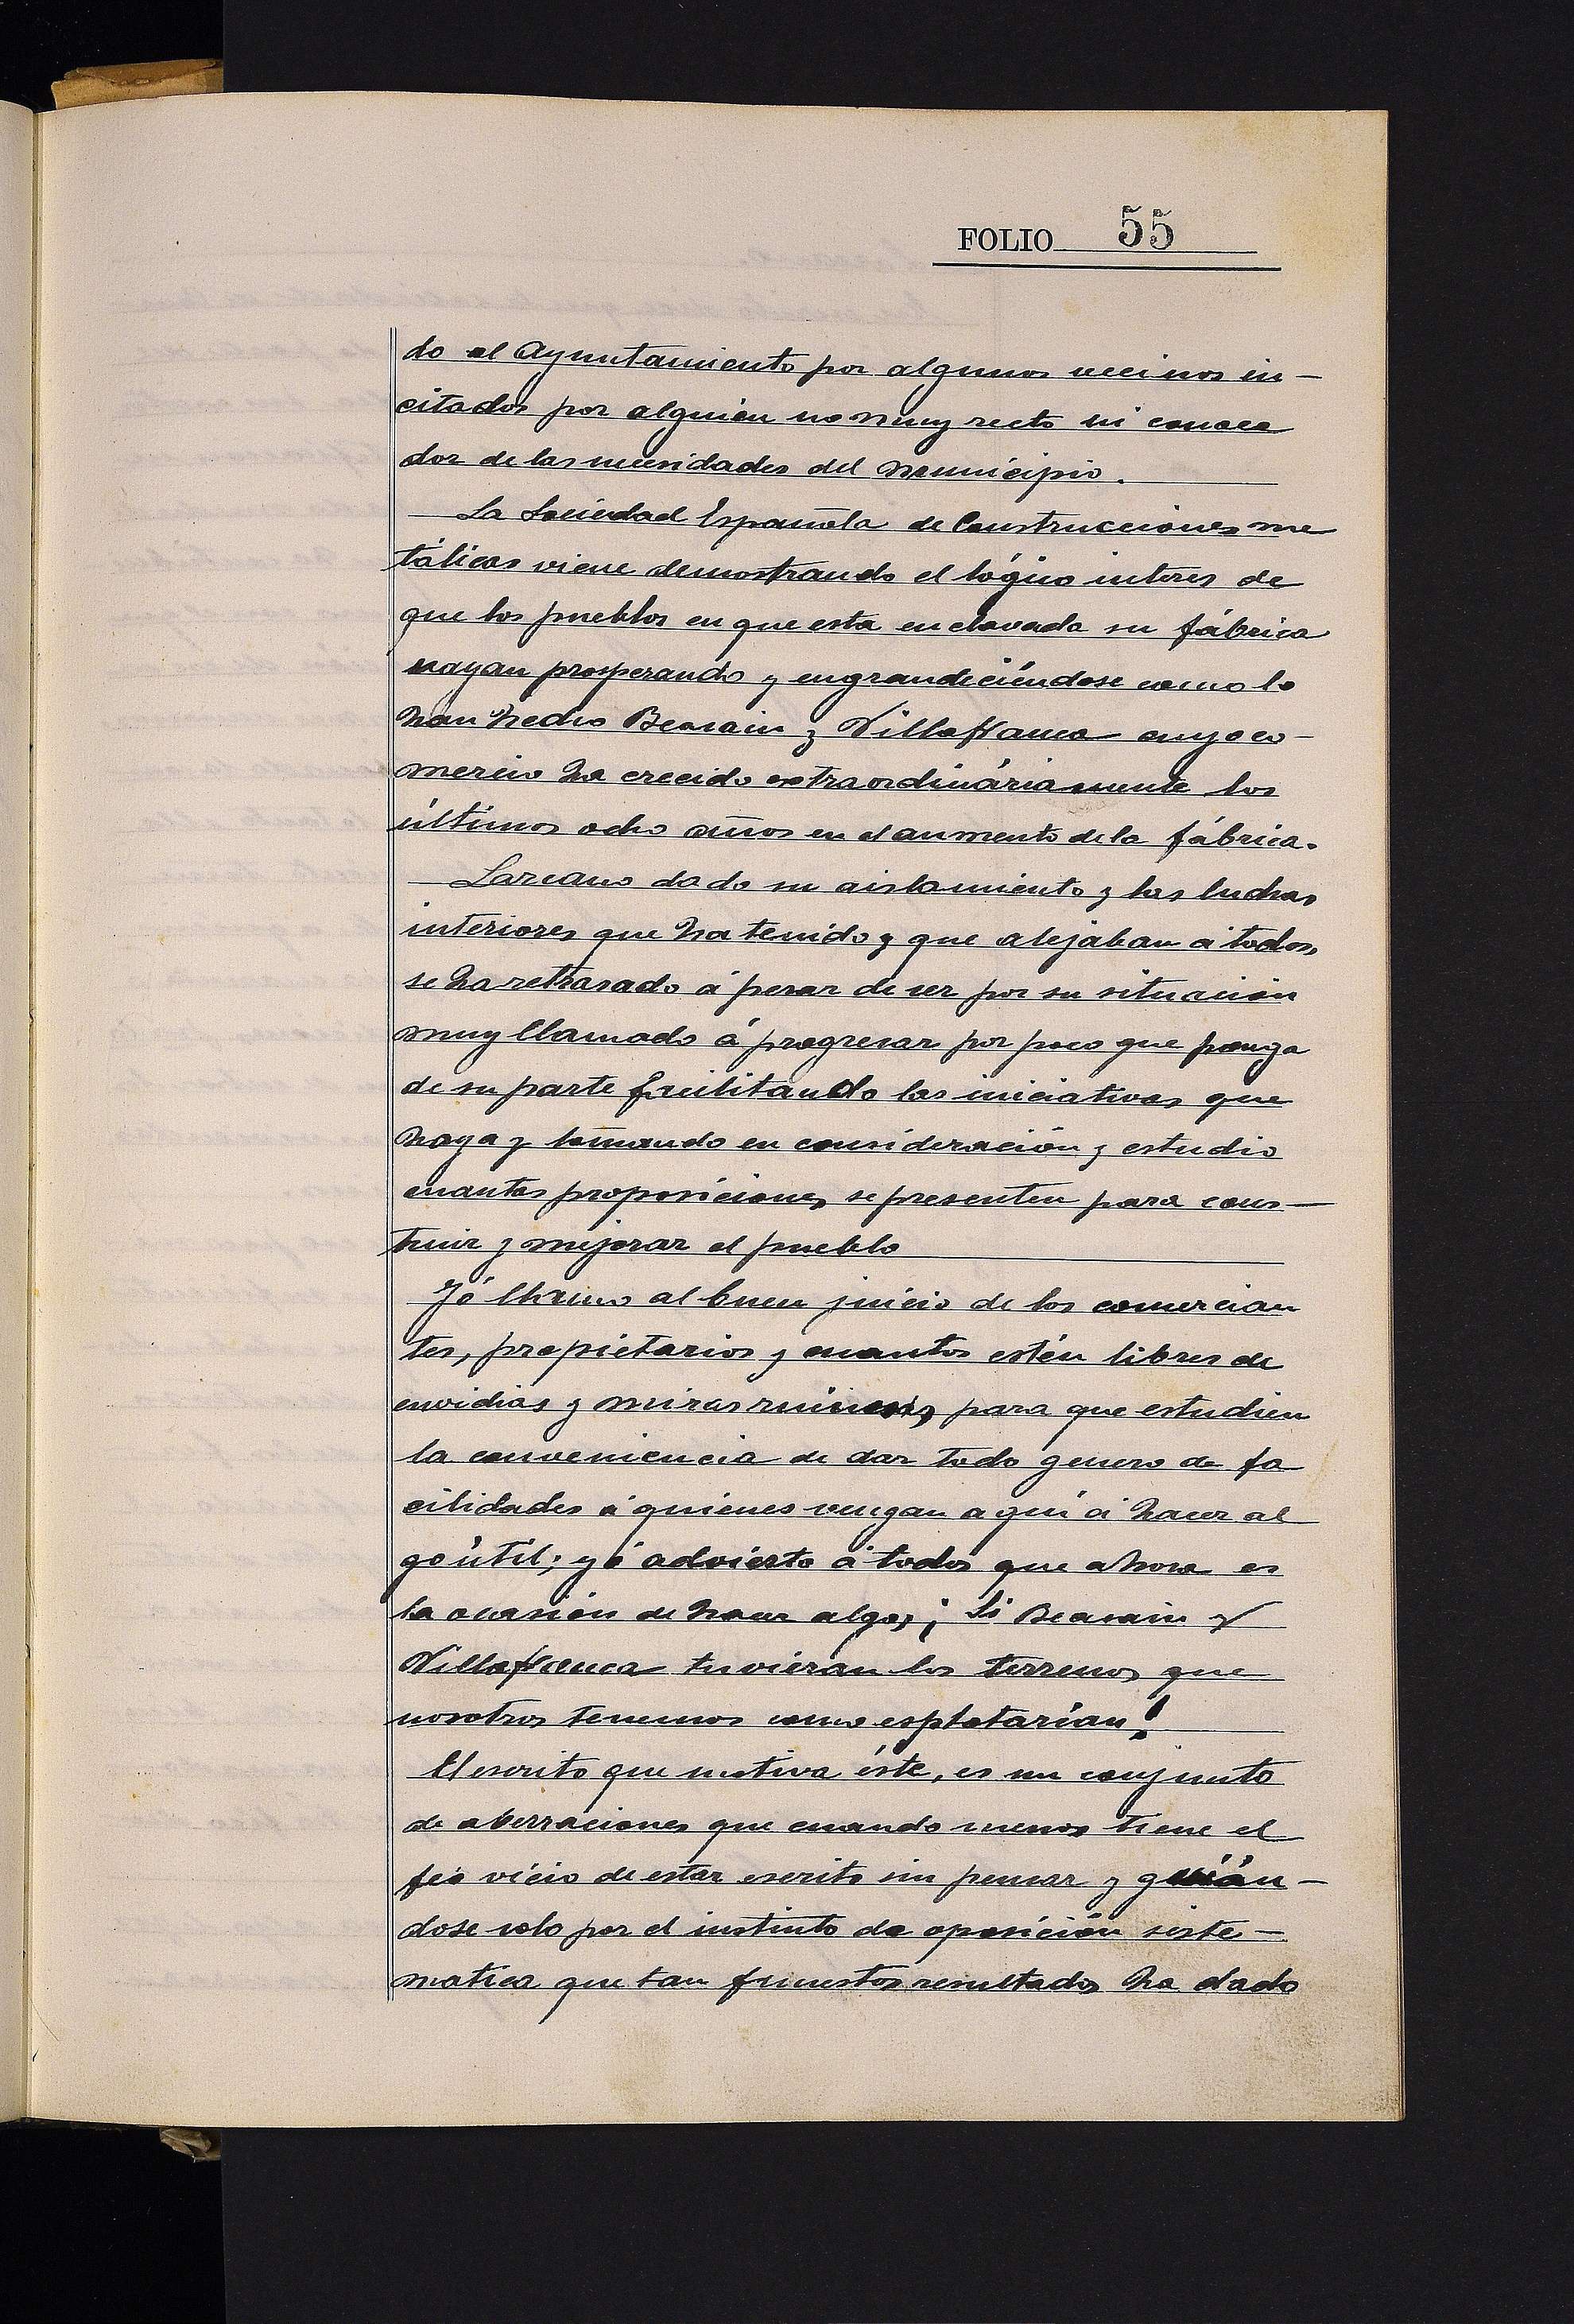 FOLIO 55
do al Ayuntamiento por algunos vecinos in-
citados por alguien no muy recto ni conoce
dor de las necesidades del municipio.
La Sociedad Española de Construcciones me
tálicas viene demostrando el lógico interes de
que los pueblos en que esta enclavada su fábrica
vayan prosperando y engrandeciéndose como lo
han hecho Beasain y Villafranca cuyo co-
mercio ha crecido extraordináriamente los
últimos ocho años en el aumento de la fábrica.
Lazcano dado su aislamiento y las luchas
interiores que ha tenido y que alejaban á todos,
se ha retrasado á pesar de ser por su situación
muy llamado á progresar por poco que ponga
de su parte facilitando las iniciativas que
haya y tomando en consideración y estudio
cuantas proposiciones se presenten para cons-
truir y mejorar el pueblo
Yó llamo al buen juicio de los comercian
tes, propietarios y cuantos estén libres de
envidias y miras ruines, para que estudien
la conveniencia de dar todo genero de fa
cilidades á quienes vengan aquí á hacer al
go útil; yó advierto á todos que ahora es
la ocasión de hacer algo, ¡Si Beasain y
Villafranca tuvieran los terrenos que
nosotros tenemos como esplotarían!
El escrito que motiva éste, es un conjunto
de aberraciones que cuando menos tiene el
feo vicio de estar escrito sin pensar y guián-
dose solo por el instinto de oposición siste-
matica que tan funestos resultados ha dado